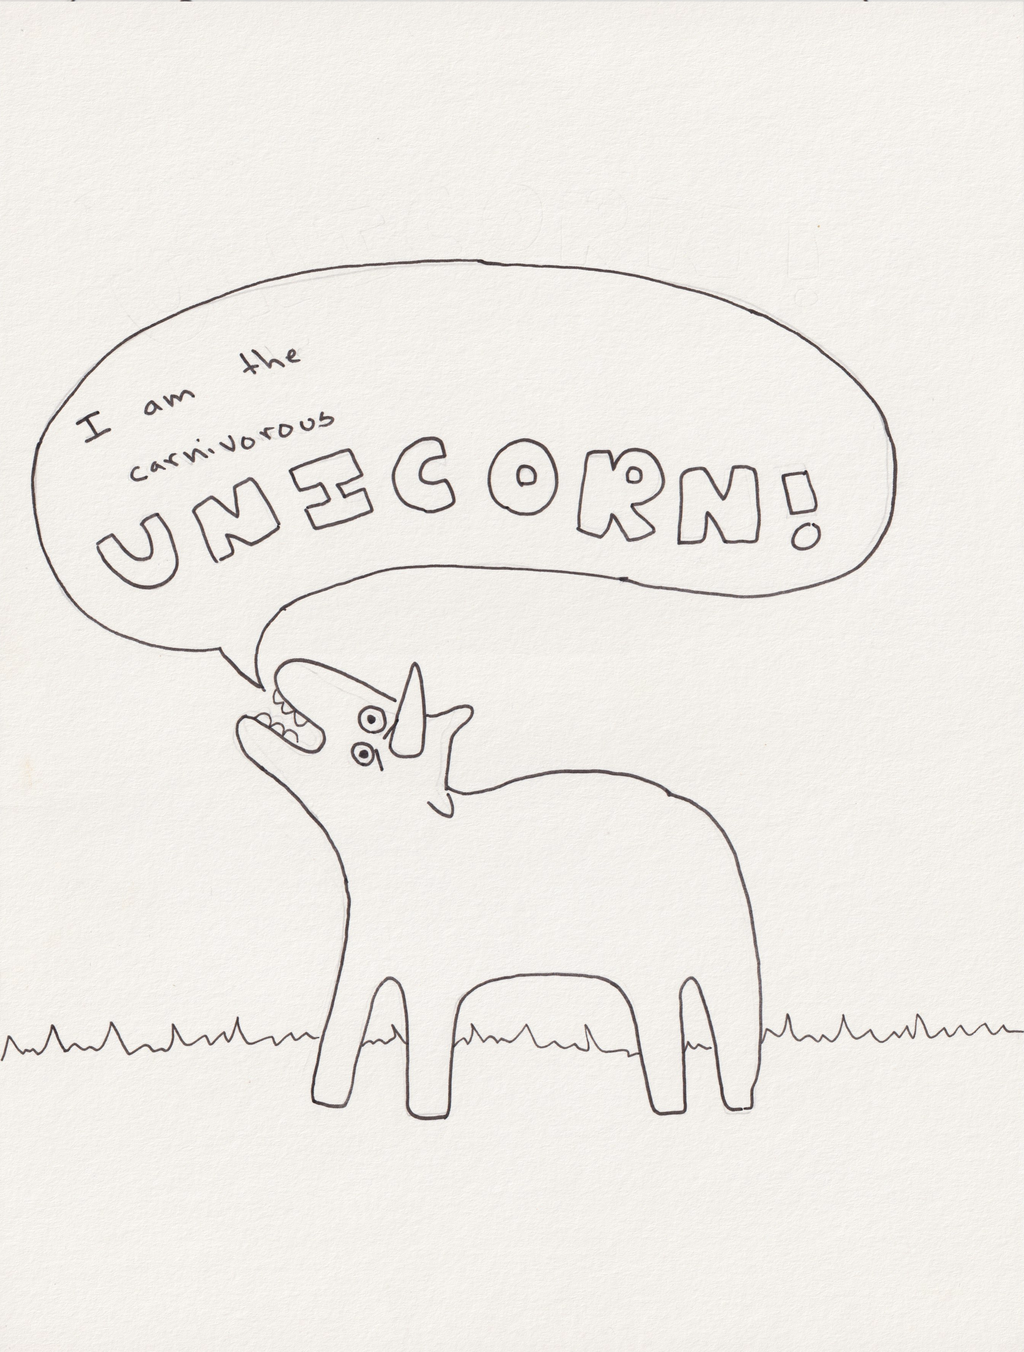 I am the
carnivorous
UNICORN!